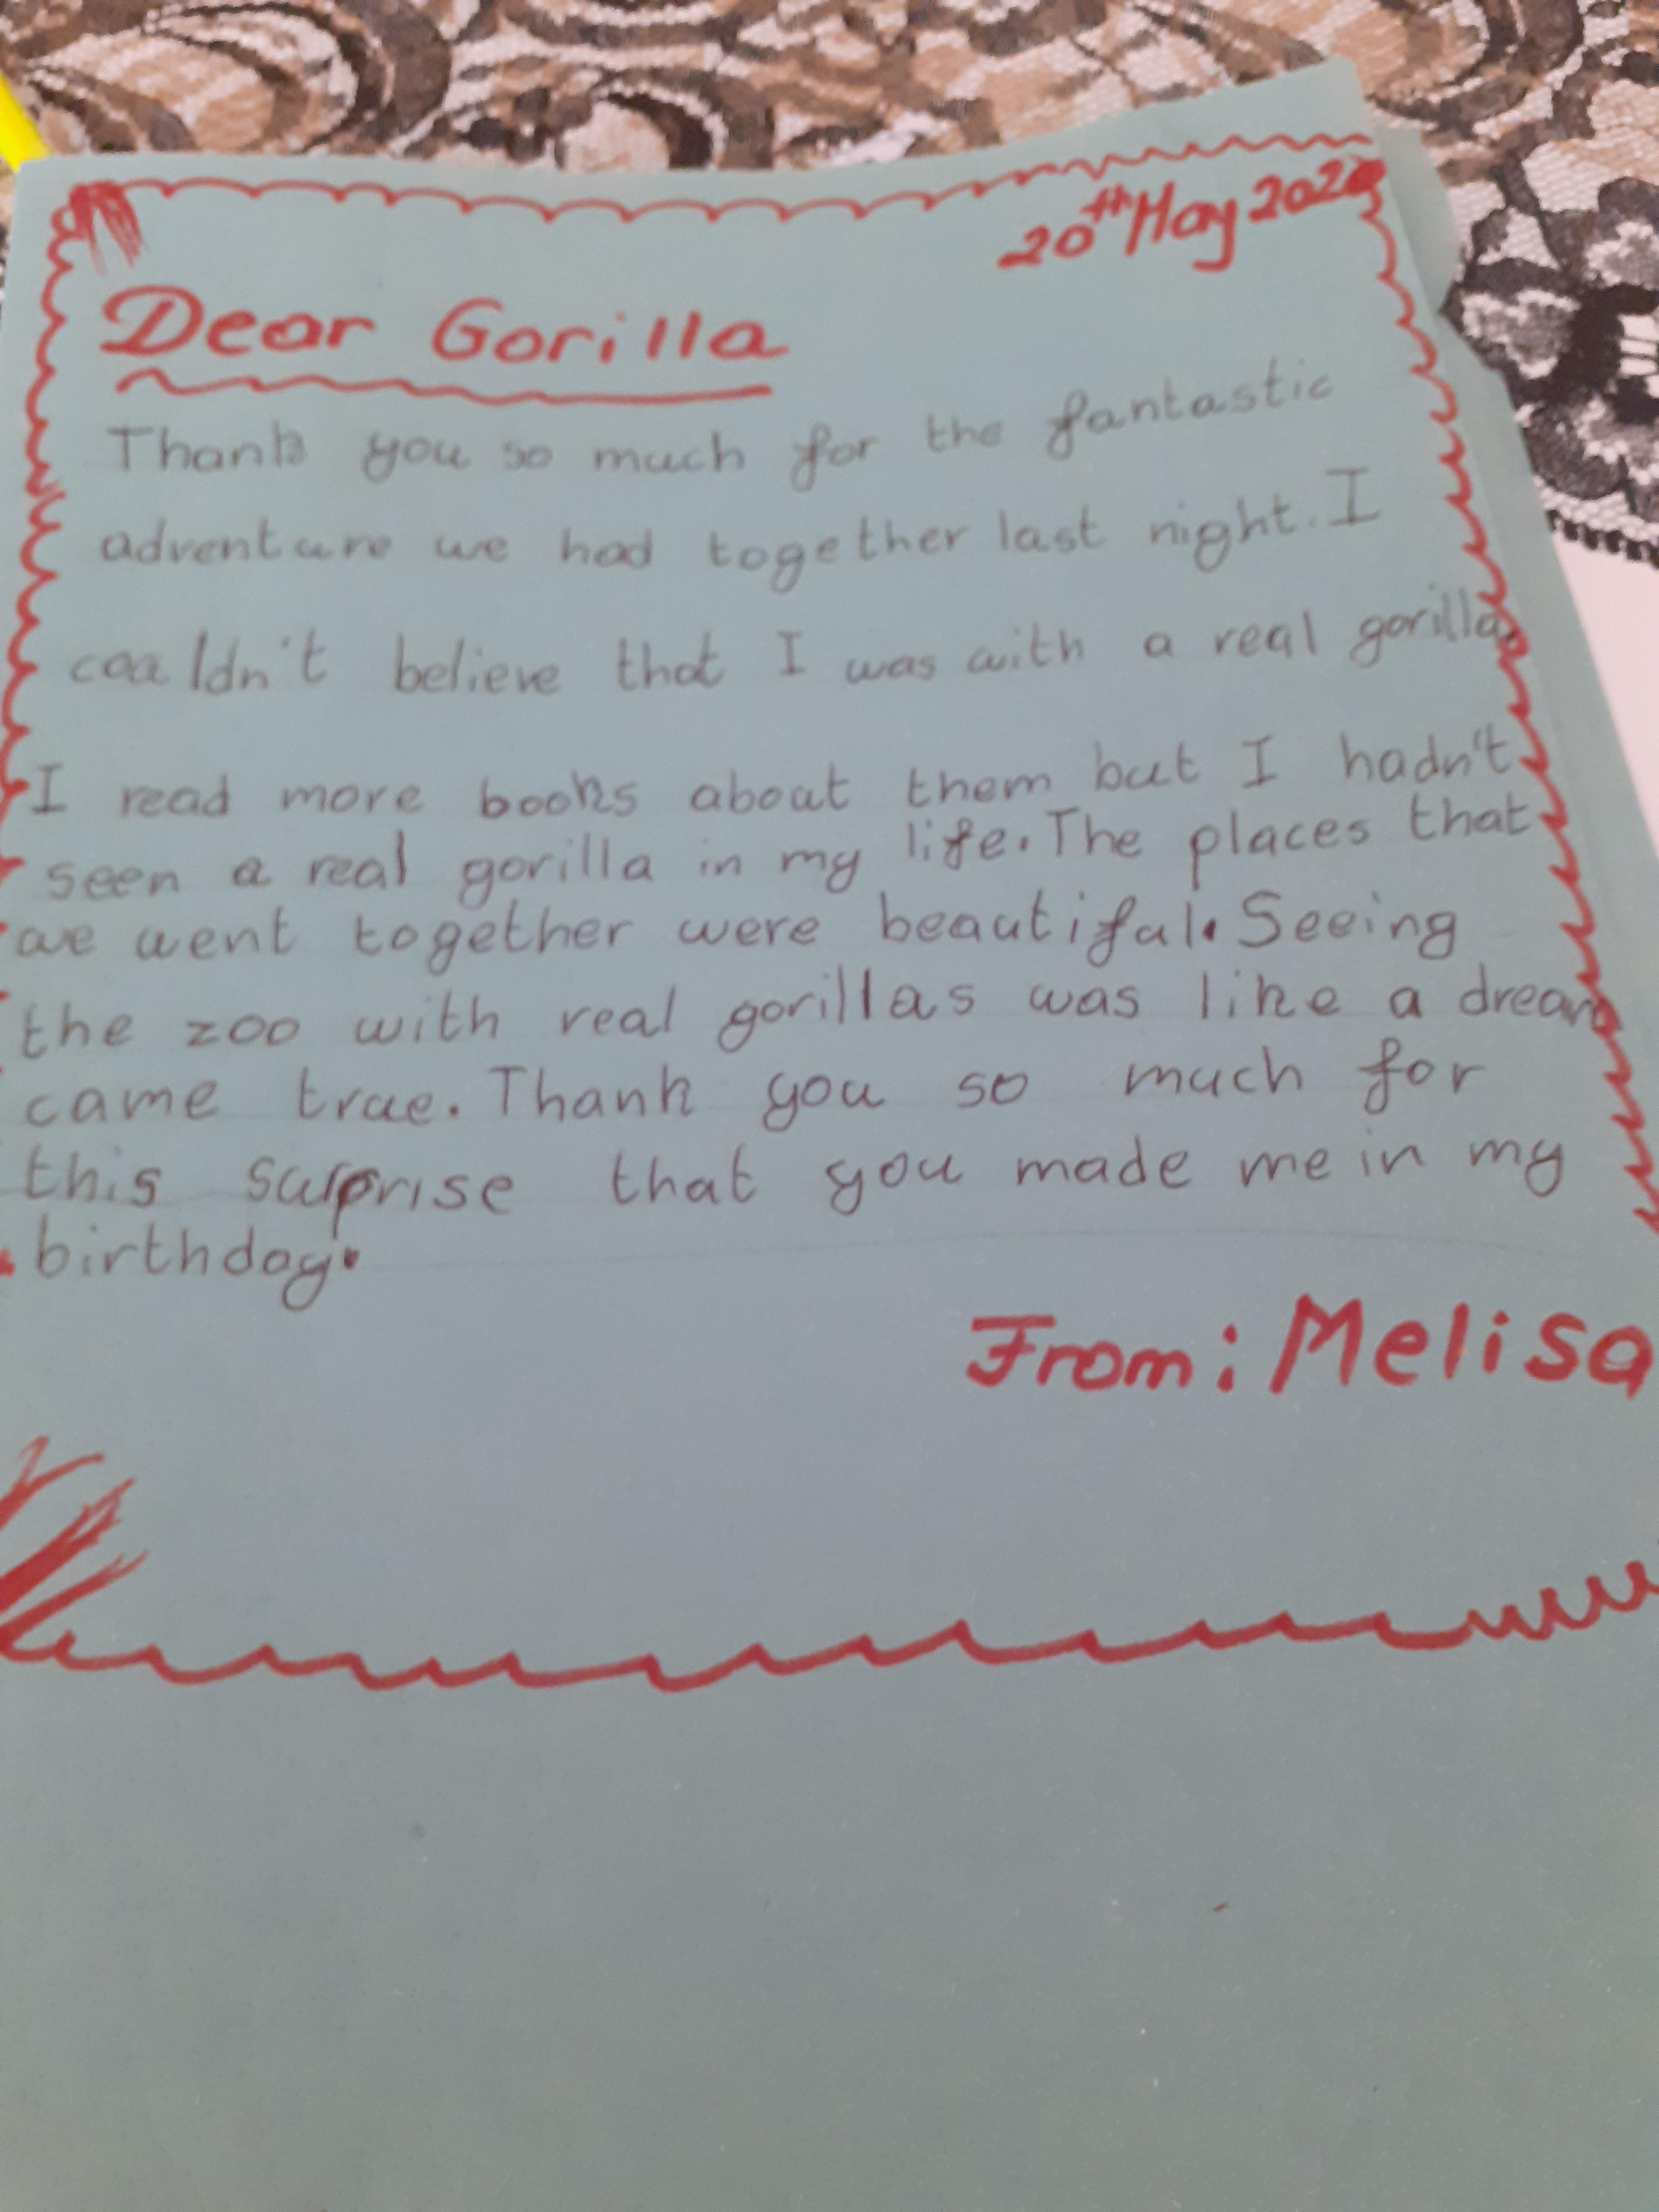 20th May 2020
Dear Gorilla
Thank you so much for the fantastic
adventure we had together last night. I
couldn't believe that I was with a real gorilla.
I read more books about them but I hadn't
seen a real gorilla in my life. The places that
we went together were beautiful. Seeing
the zoo with real gorillas was like a dream
came true. Thank you so much for
this surprise that you made me in my
birthday.
From: Melisa